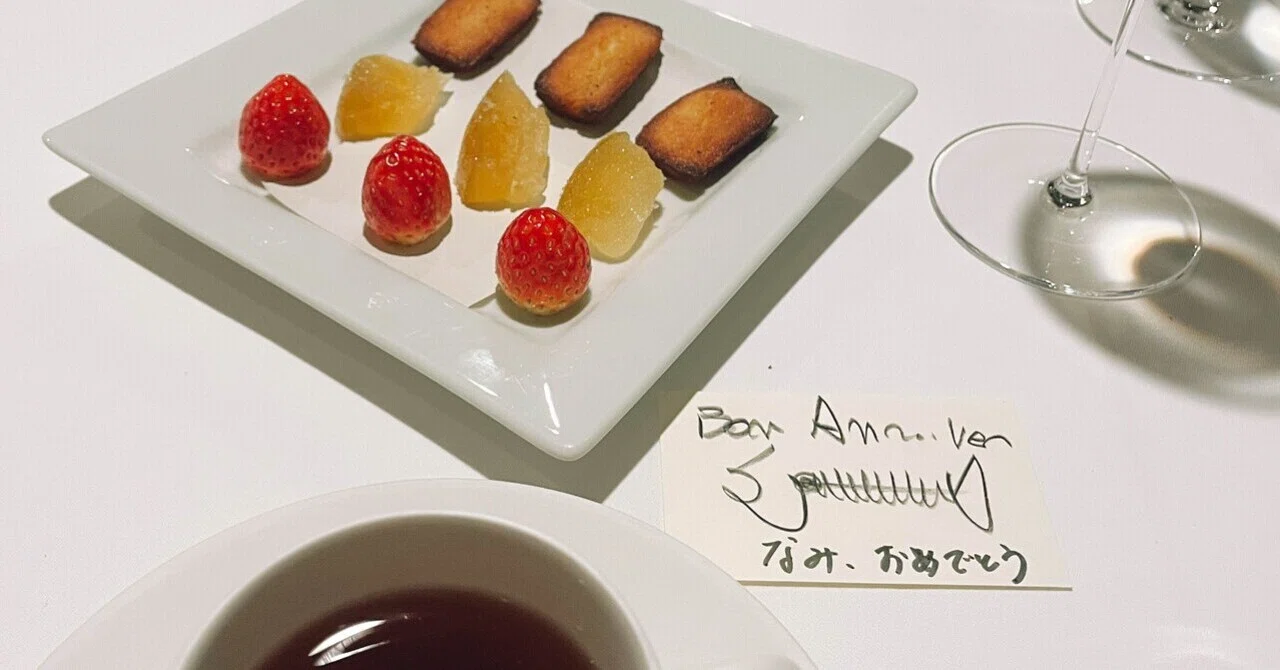 Bon Anniver
なみ、おめでとう